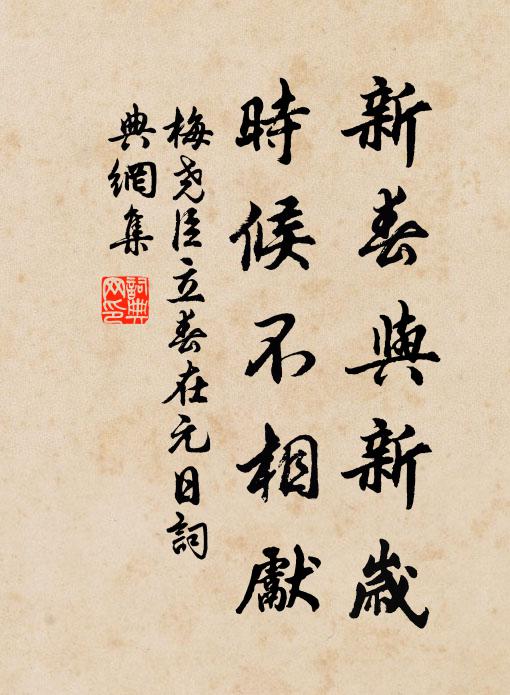 新春與新歲
時候不相獻
梅尧臣立春在元日詞
典網集
詞典
网印